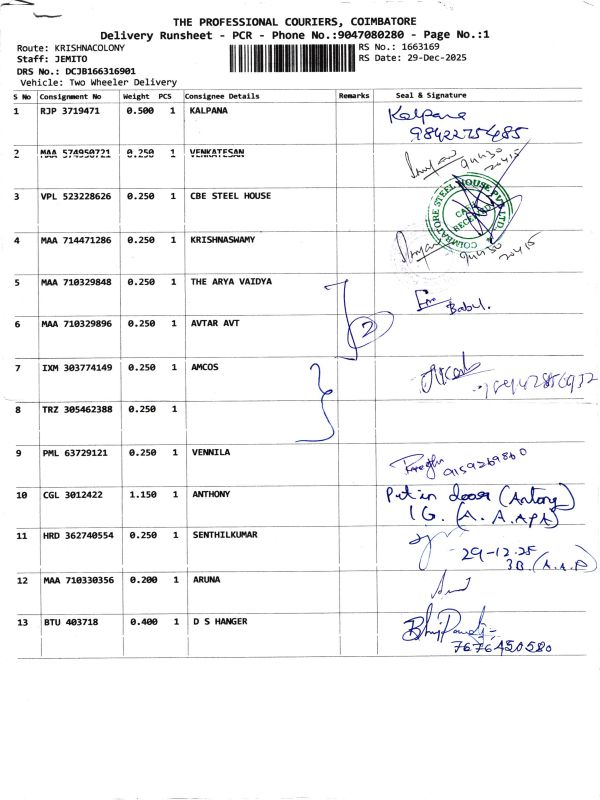 THE PROFESSIONAL COURIERS, COIMBATORE
Delivery Runsheet - PCR - Phone No.:9047080280 - Page No.:1
Route: KRISHNACOLONY RS No.: 1663169
Staff: JEMITO RS Date: 29-Dec-2025
DRS No.: DCJB166316901
Vehicle: Two Wheeler Delivery
S No Consignment No Weight PCS Consignee Details Remarks Seal & Signature
1 RJP 3719471 0.500 1 KALPANA Kalpana
9842275485
2 MAA 574950721 0.250 1 VENKATESAN 94430
20415
3 VPL 523228626 0.250 1 CBE STEEL HOUSE
COIMBATORE STEEL HOUSE PVT LTD
RECEIVED
4 MAA 714471286 0.250 1 KRISHNASWAMY 94430
20415
5 MAA 710329848 0.250 1 THE ARYA VAIDYA
Babu.
6 MAA 710329896 0.250 1 AVTAR AVT 2
7 IXM 303774149 0.250 1 AMCOS
8 TRZ 305462388 0.250 1
9 PML 63729121 0.250 1 VENNILA 9159269860
10 CGL 3012422 1.150 1 ANTHONY Put in door (Antony)
1G. (A.A.APt)
11 HRD 362740554 0.250 1 SENTHILKUMAR
29-12-25
3B. (A.A.P)
12 MAA 710330356 0.200 1 ARUNA
13 BTU 403718 0.400 1 D S HANGER
7676450580